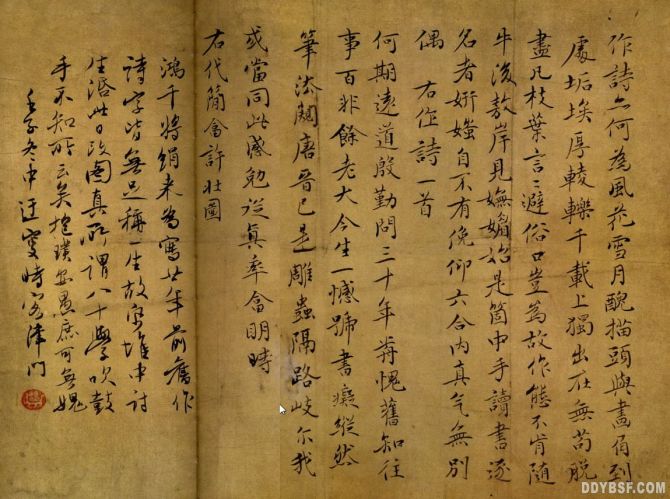 作詩六何為風花雪月醜描頭與畫角到
處垢埃厚輘轢千載上獨出在無苟脫
盡凡枝葉言々避俗口豈為故作態不肯隨
牛後敖岸見嫵媚始是箇中手讀書逐
名者妍媸自不有俛仰六合內真气無別
偶 右作詩一首
何期遠道殷勤問三十年前愧舊知往
事百非餘老大今生一憾號書癡縱然
筆法闚唐晉已是雕蟲隔路岐尔我
或當同此感勉從真率會明時
右代簡會許壯圖
鴻千將絹來為寫廿年前舊作
詩字皆無足稱一生故紙堆中討
生活此日改圖真所謂八十學吹鼓
手不知所云矣抱璞安愚庶可無媿
壬子冬中迂叟時客津門
DDYBSF.COM